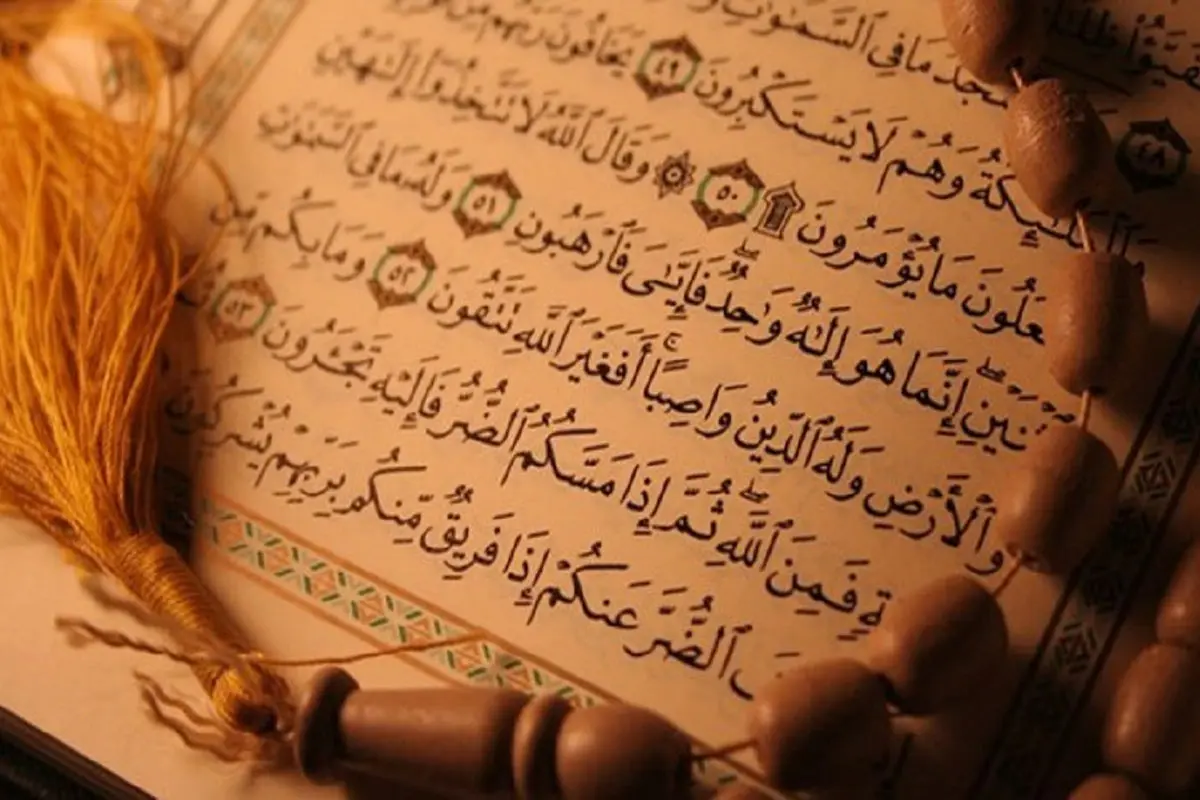 ٤٨ سْجُدُ مَا فِى ٱلسَّمَـٰوَٰتِ
وَٱلْمَلَـٰٓئِكَةُ وَهُمْ لَا يَسْتَكْبِرُونَ ٤٩ يَخَافُونَ رَبَّهُم مِّن
عَلُونَ مَا يُؤْمَرُونَ ۩ ٥٠ ۞ وَقَالَ ٱللَّهُ لَا تَتَّخِذُوٓا۟ إِلَـٰهَيْنِ
ثْنَيْنِ ۖ إِنَّمَا هُوَ إِلَـٰهٌ وَٰحِدٌ ۖ فَإِيَّـٰىَ فَٱرْهَبُونِ ٥١ وَلَهُۥ مَا فِى ٱلسَّمَـٰوَٰتِ
وَٱلْأَرْضِ وَلَهُ ٱلدِّينُ وَاصِبًا ۚ أَفَغَيْرَ ٱللَّهِ تَتَّقُونَ ٥٢ وَمَا بِكُم مِّن
ةٍ فَمِنَ ٱللَّهِ ۖ ثُمَّ إِذَا مَسَّكُمُ ٱلضُّرُّ فَإِلَيْهِ تَجْـَٔرُونَ ٥٣
فَ ٱلضُّرَّ عَنكُمْ إِذَا فَرِيقٌ مِّنكُم بِرَبِّهِمْ يُشْرِكُونَ